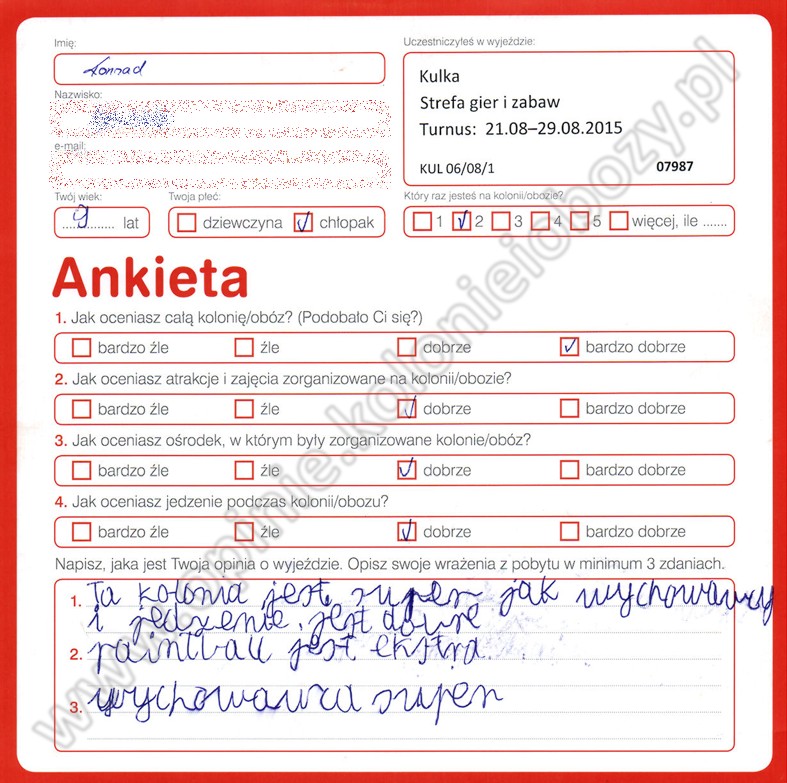 Imię:
Konrad
Nazwisko:
e-mail:
Uczestniczyłeś w wyjeździe:
Kulka
Strefa gier i zabaw
Turnus: 21.08–29.08.2015
KUL 06/08/1 07987
Twój wiek:
9 lat
Twoja płeć:
dziewczyna chłopak
Który raz jesteś na kolonii/obozie?
1 2 3 4 5 więcej, ile .......
Ankieta
1. Jak oceniasz całą kolonię/obóz? (Podobało Ci się?)
bardzo źle źle dobrze bardzo dobrze
2. Jak oceniasz atrakcje i zajęcia zorganizowane na kolonii/obozie?
bardzo źle źle dobrze bardzo dobrze
3. Jak oceniasz ośrodek, w którym były zorganizowane kolonie/obóz?
bardzo źle źle dobrze bardzo dobrze
4. Jak oceniasz jedzenie podczas kolonii/obozu?
bardzo źle źle dobrze bardzo dobrze
Napisz, jaka jest Twoja opinia o wyjeździe. Opisz swoje wrażenia z pobytu w minimum 3 zdaniach.
1. Ta kolonia jest super jak wychowawcy
i jedzenie jest dobre
2. paintball jest ekstra
3. wychowawca super
www.opinie.kolonieiobozy.pl